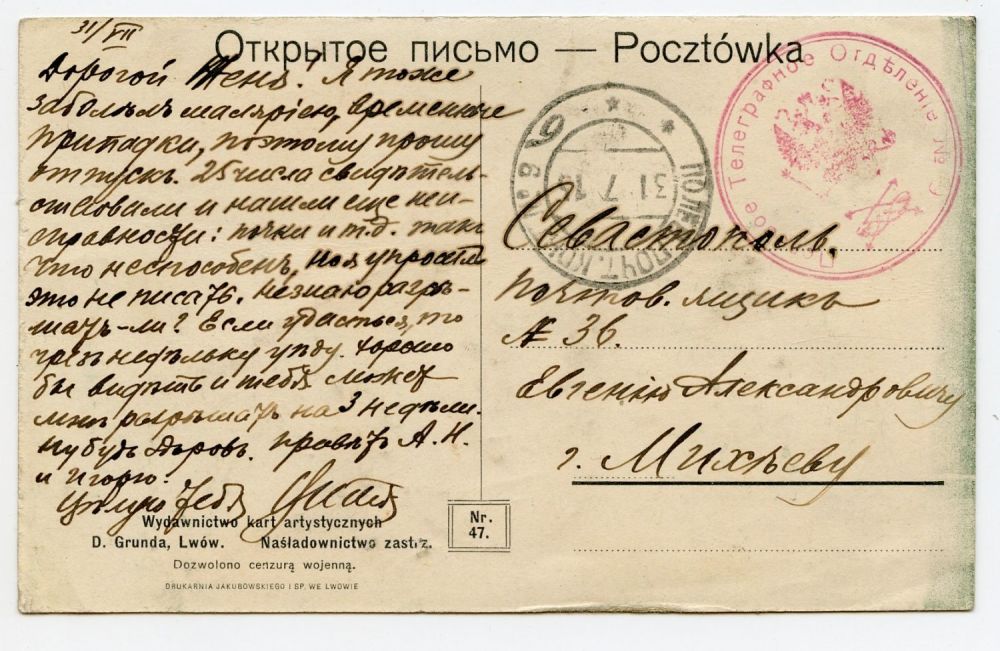 31/VII
Открытое письмо — Pocztówka
Дорогой Женя! Я тоже
заболѣлъ маляріею, временные
припадки, поэтому прошу
отпускъ. 25 числа свидѣтель-
ствовали и нашли еще неи-
справности: почки и т.д. такъ
что неспособенъ, но я упросилъ
это не писать. Незнаю разрѣ-
шатъ-ли? Если удасться, то
черезъ недѣльку уѣду. Хорошо
бы видѣть и тебя может
мнѣ разрѣшатъ на 3 недѣли.
Ну будь здоровъ. Привѣтъ А. Н.
и Игорю.
Цѣлую тебя
Wydawnictwo kart artystycznych
D. Grunda, Lwów. Naśladownictwo zastrz.
Dozwolono cenzurą wojenną.
DRUKARNIA JAKUBOWSKIEGO I SP. WE LWOWIE
Nr.
47.
ПОЛЕВ. ПОЧТ. КОН.
31 7 15
Телеграфное Отдѣленіе №
Севастополь.
Почтов. ящикъ
№ 36.
Евгенію Александровичу
г. Михѣеву